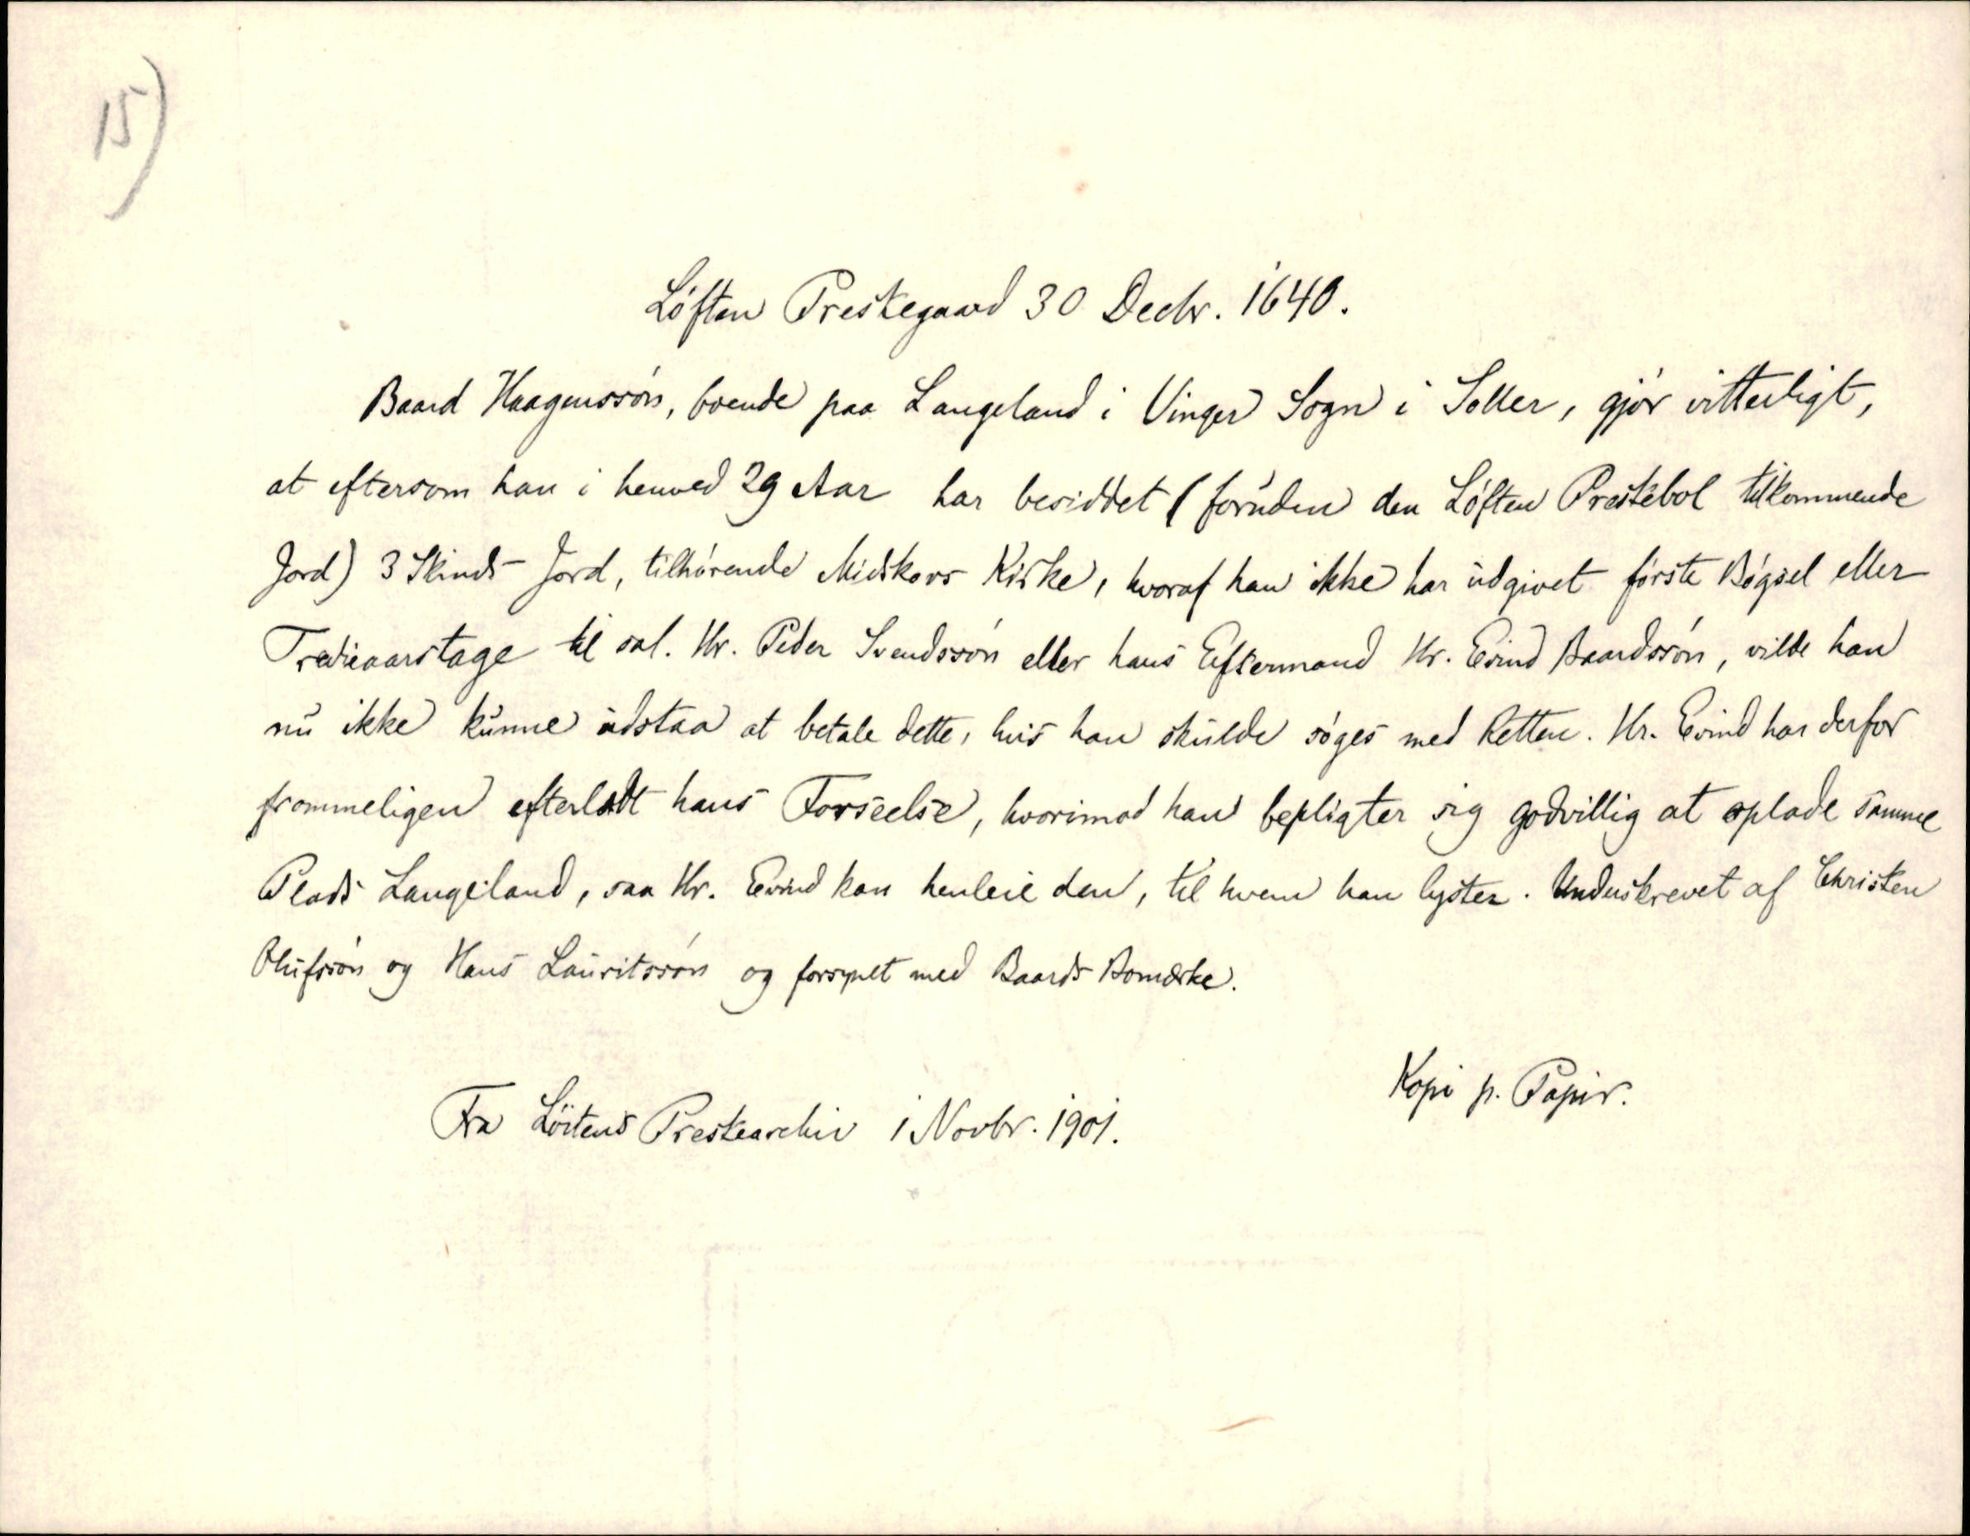 15)
Løften Prestegaard 30 Decbr. 1640.
Baard Haagenssøn, boende paa Langeland i Vinger Sogn i Soller, gjør vitterligt,
at eftersom han i henved 29 Aar har besiddet (foruden den Løften Prestebol tilkommende
Jord) 3 Skinds Jord, tilhørende Midskovs Kirke, hvoraf han ikke har udgivet første Bøgsel eller
Trediaarstage til sal. Hr. Peder Svendssøn eller hans Eftermand Hr. Evind Baardssøn, vilde han
nu ikke kunne udstaa at betale dette, hvis han skulde søges med Retten. Hr. Evind har derfor
frommeligen efterladt hans Forseelse, hvorimod han bepligter sig godvillig at oplade samme
Plads Langeland, saa Hr. Evind kan henleie den, til hvem han lyster. Underskrevet af Christen
Olufssøn og Hans Lauritssøn og forsynet med Baards Bomærke.
Kopi p. Papir.
Fra Løitens Prestearchiv i Novbr. 1901.